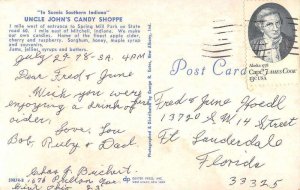 "In Scenic Southern Indiana"
UNCLE JOHN'S CANDY SHOPPE
1 mile west of entrance to Spring Mill Park on State
road 60. 1 mile east of Mitchell, Indiana. We make
our own candies. Home of the finest apple cider,
cherry and raspberry. Sorghum, honey, maple syrup
and souvenirs.
Jams, jellies, syrups and butters.
July 29-78-3A.4PM
Dear Fred & June
Wish you were
enjoying a drink of
cider.
Love, Lou
Bob, Ruby & Dad.
Chas G. Buchert
1676
Ohio
59874-B
Photographed & Distributed by George R. New Albany, Ind.
DEXTER PRESS, INC.
WEST NYACK, NEW YORK
Post Card
Alaska 1778
Capt. JAMES COOK
13c USA
Fred & June
13720 S W 14 Street
Ft. Lauderdale
Florida
33325